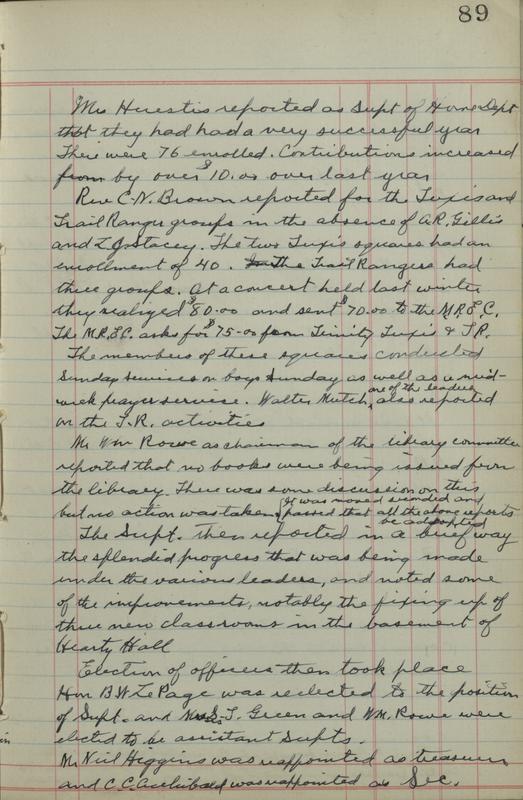 89
Mrs Huestis reported as Supt of Home Dept
that they had had a very successful year
There were 76 enrolled. Contributions increased
from by over $10.00 over last year
Rev C. N. Brown reported for the Tuxis and
Trail Ranger groups in the absence of A.R. Gillis
and L J Stacey. The two Tuxis squares had an
enrollment of 40. The Trail Rangers had
three groups. At a concert held last winter
they realized $80.00 and sent $70.00 to the M.R.E.C.
The M.R.E.C. asks for $75-00 from Trinity Tuxis & T.R.
The members of these squares conducted
Sunday services on boys Sunday as well as a mid-
week prayer service. Walter Mutch, one of the leaders also reported
on the T.R. activities
Mr Wm Rowe as chairman of the library committee
reported that no books were being issued from
the library. There was some discussion on this
but no action was taken. (It was moved seconded and
passed that all the above reports
be adopted
The Supt. then reported in a brief way
the splendid progress that was being made
under the various leaders, and noted some
of the improvements, notably the fixing up of
three new classrooms in the basement of
Heartz Hall
Election of officers then took place
Hon B.W. LePage was reelected to the position
of Supt. and T. Green and Wm. Rowe were
elected to be assistant Supts.
Mr Neil Higgins was reappointed as treasurer
and C.C. Archibald was reappointed as Sec.